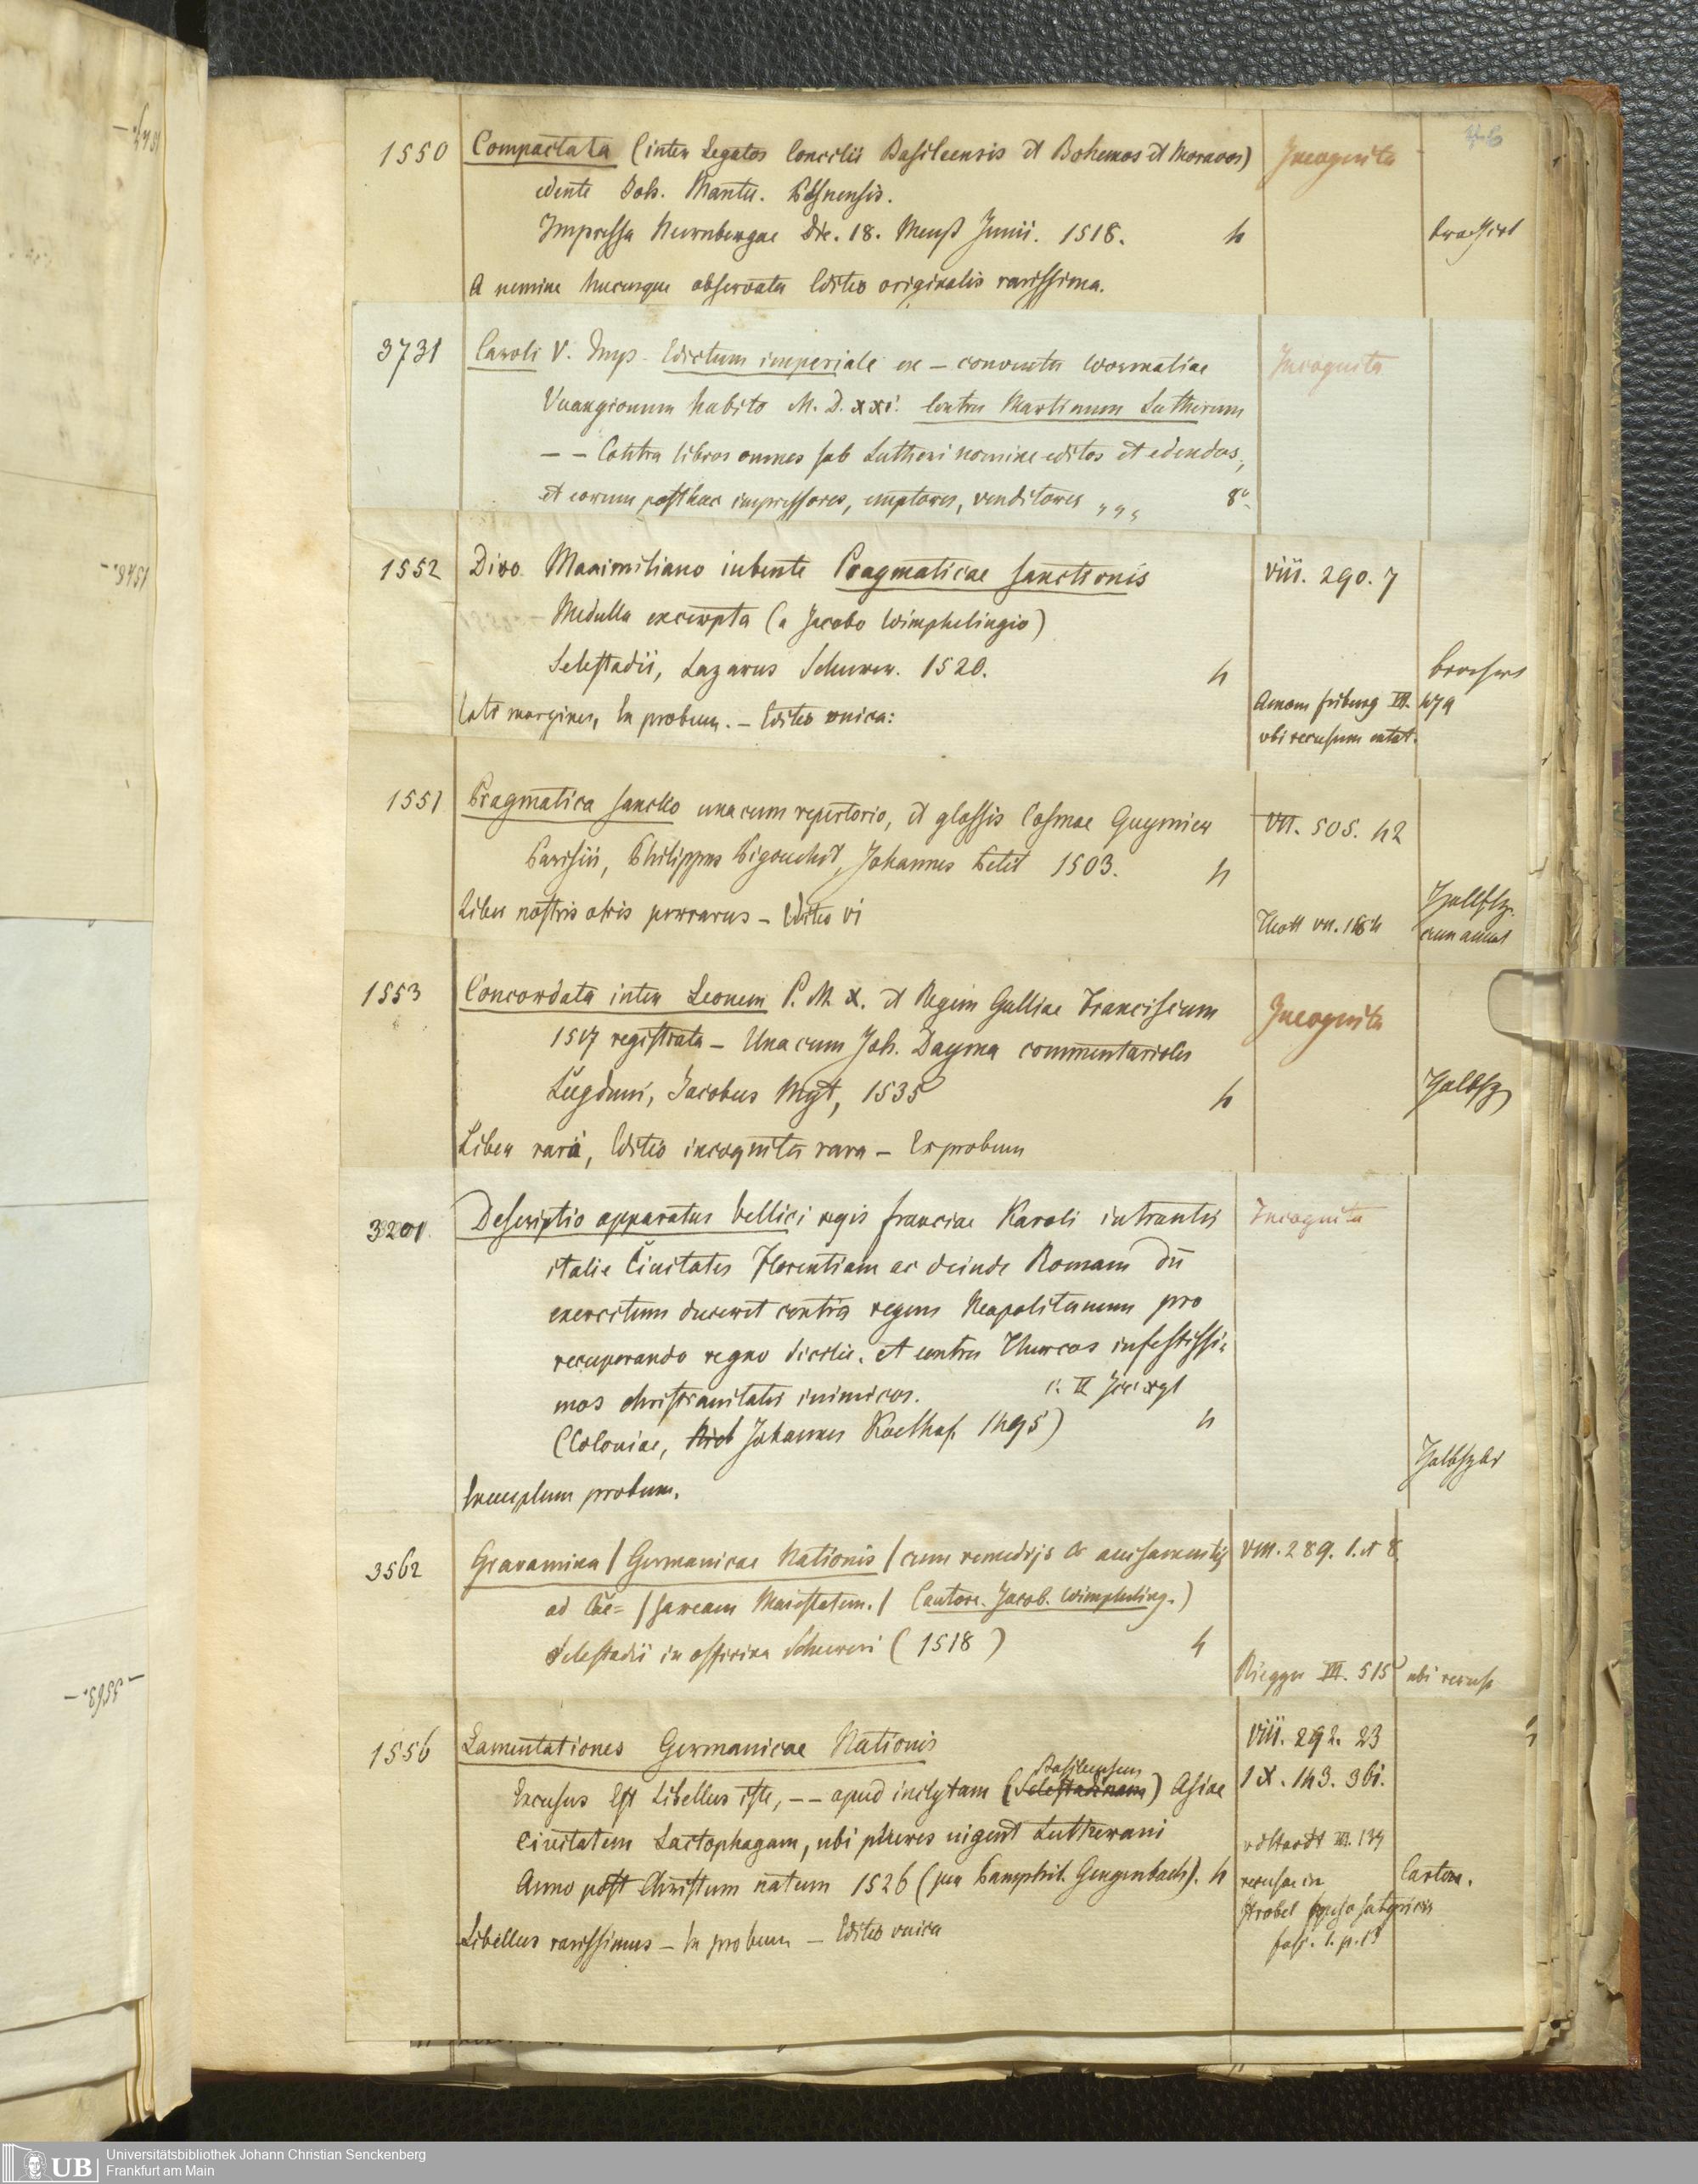 46
1550 Compactata (inter Legatos Concilii Basileensis et Bohemos et Moravos) Incognita
edente Joh. Mantu.
Impressa Nurnbergae Die. 18. Mens Junii. 1518. 4 brochirt
A nemine hucusque observata Editio originalis rarissima.
3731 Caroli V. Imp. Edictum imperiale ex – conventu Wormatiae Incognita
Vuangionum habito M. D. xxi. Contra Martinum Lutherum
– – Contra libros omnes sub Lutheri nomine editos et edendos,
et eorum posthac impressores, emptores, venditores „ „ „ 8°.
1552 Divo Maximiliano iubente Pragmaticae sanctionis viii. 290. 7
Medulla excerpta (a Jacobo Wimphelingio)
Selestadii, Lazarus Schurer. 1520. 4 brochirt
Lati margines, Ex probum. – Editio unica: Amoen friburg III. 479
ubi recusum extat.
1551 Pragmatica sanctio una cum repertorio, et glossis Cosmae Guymier VII. 505. 42
Parisiis, Philippus Pigouchet, Johannes Petit 1503. 4
Liber nostris oris perrarus – Editio vi Thott VII. 184 Halbfz.
1553 Concordata inter Leonem P. M. X. et Regem Galliae Franciscum Incognita
1517 registrata – Una cum Joh. Dayma commentariolis
Lugduni, Jacobus Myt, 1535 4 Halbfz
Liber rarus, Editio incognita rara – Ex probum
3201 Descriptio apparatus bellici regis franciae Karoli intrantis Incognita
italie Civitates Florentiam ac deinde Romam dū
exercitum duceret contra regem Neapolitanum pro
recuperando regno sicilie. et contra Thurcos infestissi=
mos christianitatis inimicos.
(Coloniae, Johannes Koelhof. 1495) 4
Halbfzbd
Exemplum probum.
3562 Gravamina / Germanicae Nationis / cum remedijs & auisamentis VIII. 289. 1. et 8
ad Cae= / saream Maiestatem. / (autore. Jacob. Wimpheling.)
Selestadii in officina Schureri (1518) 4
Riegger III. 515 ubi recus
1556 Lamentationes Germanicae Nationis viii. 292. 23
Basileensem
Excusus Est Libellus iste, – – apud inclytam (Selestadinam) Asiae IX. 143. 361.
Civitatem Lactophagam, ubi plures uigent Lutherani vdHardt III. 134
Anno post Christum natum 1526 (per Pamphil. Gengenbach). 4 recusae in Carton.
Strobel
Libellus rarissimus – Ex probum – Editio unica fasc. 1. p. 13
Universitätsbibliothek Johann Christian Senckenberg
Frankfurt am Main
UB